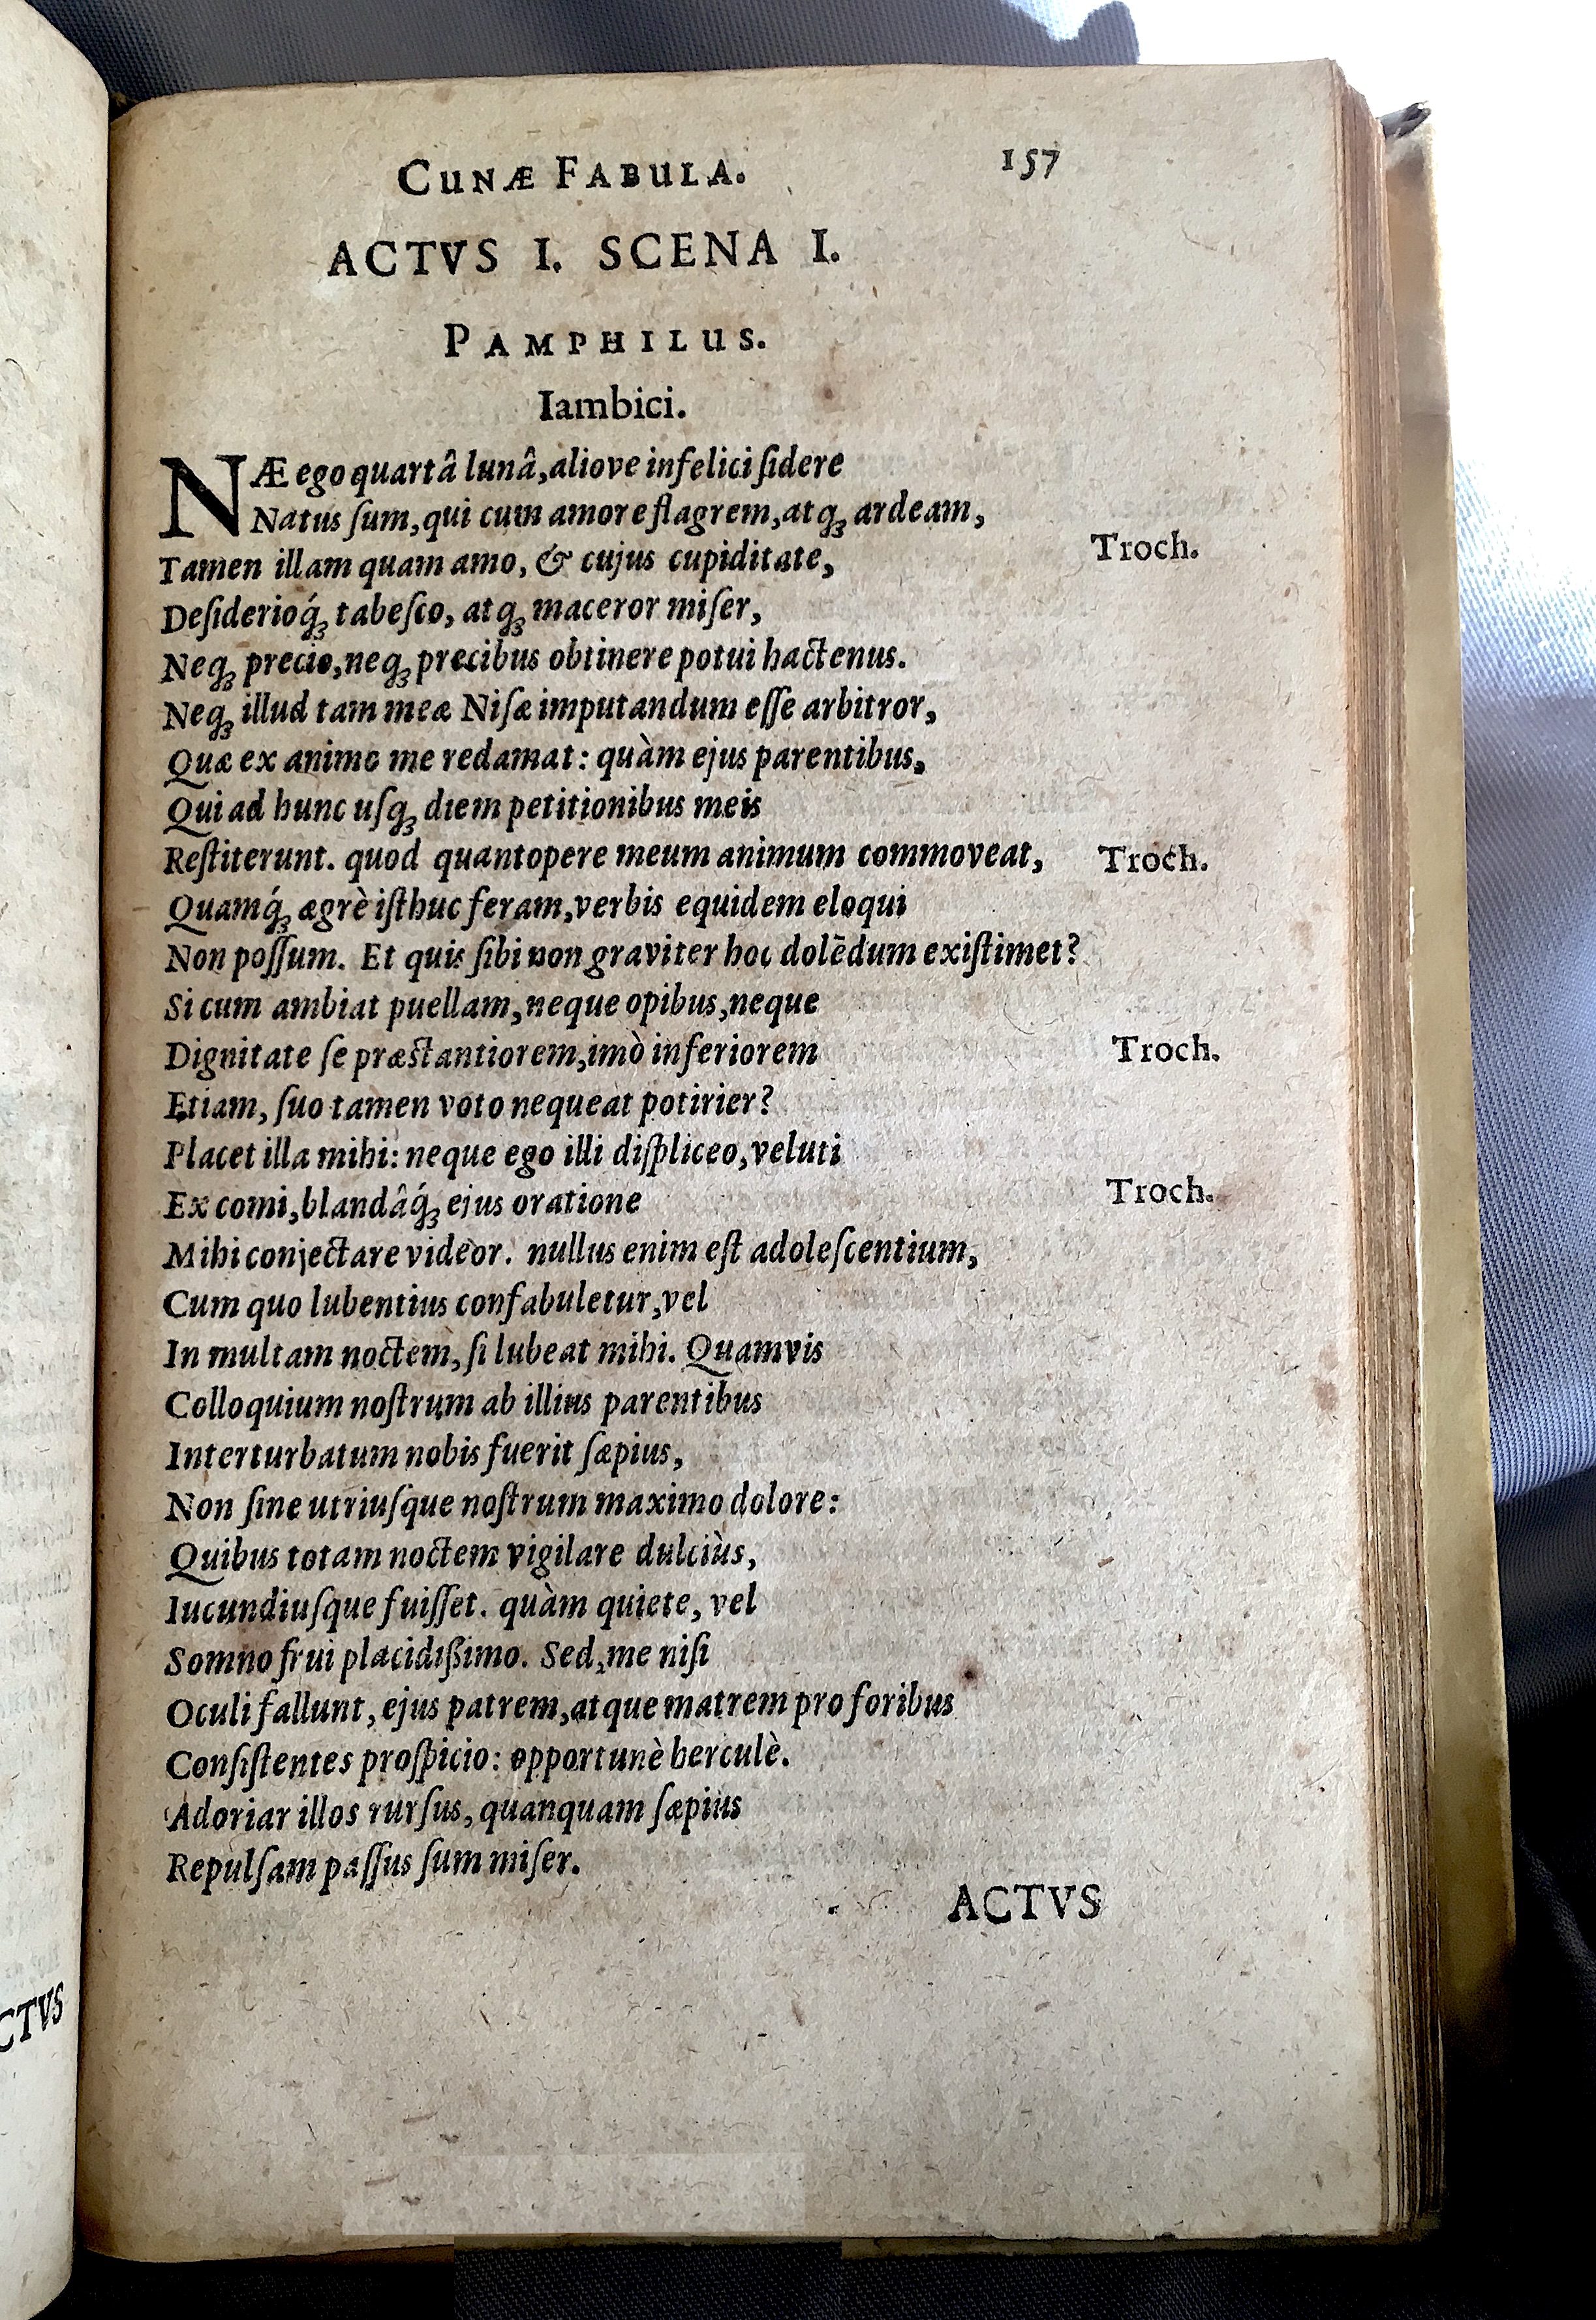 CUNÆ FABULA. 157
ACTVS I. SCENA I.
PAMPHILUS.
Iambici.
NÆ ego quartâ lunâ, aliove infelici ſidere
Natus ſum, qui cum amore flagrem, atqꝫ ardeam,
Tamen illam quam amo, & cujus cupiditate, Troch.
Deſiderioq́ꝫ tabeſco, atqꝫ maceror miſer,
Neqꝫ precio, neqꝫ precibus obtinere potui hactenus.
Neqꝫ illud tam meæ Niſæ imputandum eſſe arbitror,
Quæ ex animo me redamat: quàm ejus parentibus,
Qui ad hunc uſqꝫ diem petitionibus meis
Reſtiterunt. quod quantopere meum animum commoveat, Troch.
Quamq́ꝫ ægrè iſthuc feram, verbis equidem eloqui
Non poſſum. Et quis ſibi non graviter hoc dolēdum exiſtimet?
Si cum ambiat puellam, neque opibus, neque
Dignitate ſe præſtantiorem, imò inferiorem Troch.
Etiam, ſuo tamen voto nequeat potirier?
Placet illa mihi: neque ego illi diſpliceo, veluti
Ex comi, blandâq́ꝫ ejus oratione Troch.
Mihi conjectare videor. nullus enim eſt adoleſcentium,
Cum quo lubentius confabuletur, vel
In multam noctem, ſi lubeat mihi. Quamvis
Colloquium noſtrum ab illius parentibus
Interturbatum nobis fuerit ſæpius,
Non ſine utriuſque noſtrum maximo dolore:
Quibus totam noctem vigilare dulciùs,
Iucundiuſque fuiſſet. quàm quiete, vel
Somno frui placidißimo. Sed, me niſi
Oculi fallunt, ejus patrem, atque matrem pro foribus
Conſiſtentes proſpicio: opportunè herculè.
Adoriar illos rurſus, quanquam ſæpius
Repulſam paſſus ſum miſer.
ACTVS
CTVS